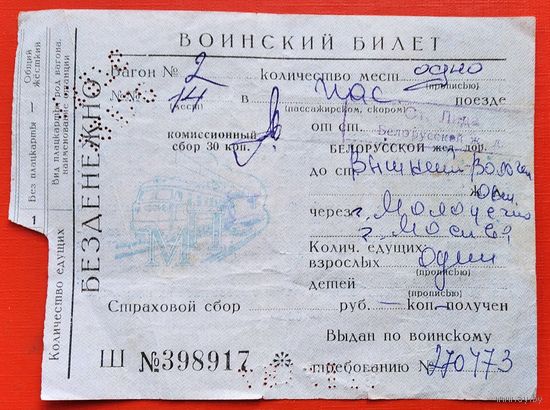 ВОИНСКИЙ БИЛЕТ
Вагон № 2 количество мест одно
(прописью)
№№ 14 в пас поезде
(мест) (пассажирском, скором)
комиссионный
сбор 30 коп.
от ст.
Ст. Лида
Белорусской ж. д.
БЕЛОРУССКОЙ жел. дор.
до ст. Вышний Волочек
Окт ж.
через г. Молодечно
г. Москва
Колич. едущих
взрослых один
(прописью)
детей
(прописью)
Страховой сбор руб. — коп. получен
Выдан по воинскому
Ш №398917 требованию № 270473
БЕЗДЕНЕЖНО
Общий
жесткий
Без плацкарты —
Вид плацкарты, род вагона,
наименование станции
1
Количество едущих
МП